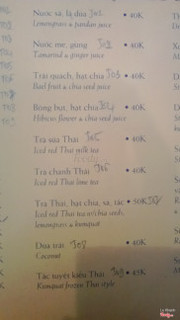 Nước sả, lá dứa J01 • 40K
Lemongrass & pandan juice
Nước me, gừng J02 • 40K
Tamarind & ginger juice
Trái quách, hạt chia J03 • 40K
Bael fruit & chia seed juice
Bông bụt, hạt chia J04 • 40K
Hibicus flower & chia seed juice
Trà sữa Thái J05 • 40K
Iced red Thai milk tea
Trà chanh Thái J06 • 40K
Iced red Thai lime tea
Trà Thái, hạt chia, sả, tắc • 50K
Iced red Thai tea w/chia seeds,
lemongrass & kumquat
Dừa trái J08 • 40K
Coconut
Tắc tuyết kiểu Thái J09 • 45K
Kumquat frozen Thai style